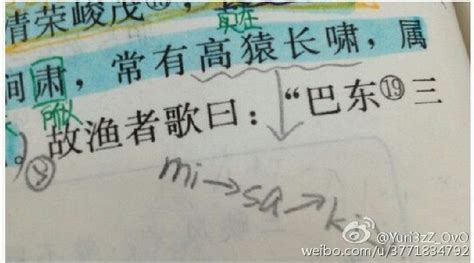 清荣峻茂
涧肃，常有高猿长啸，属
所以
故渔者歌曰：“巴东⑲三
mi→sa→ki
@Yuri3zZ_OvO
weibo.com/u/3771834792